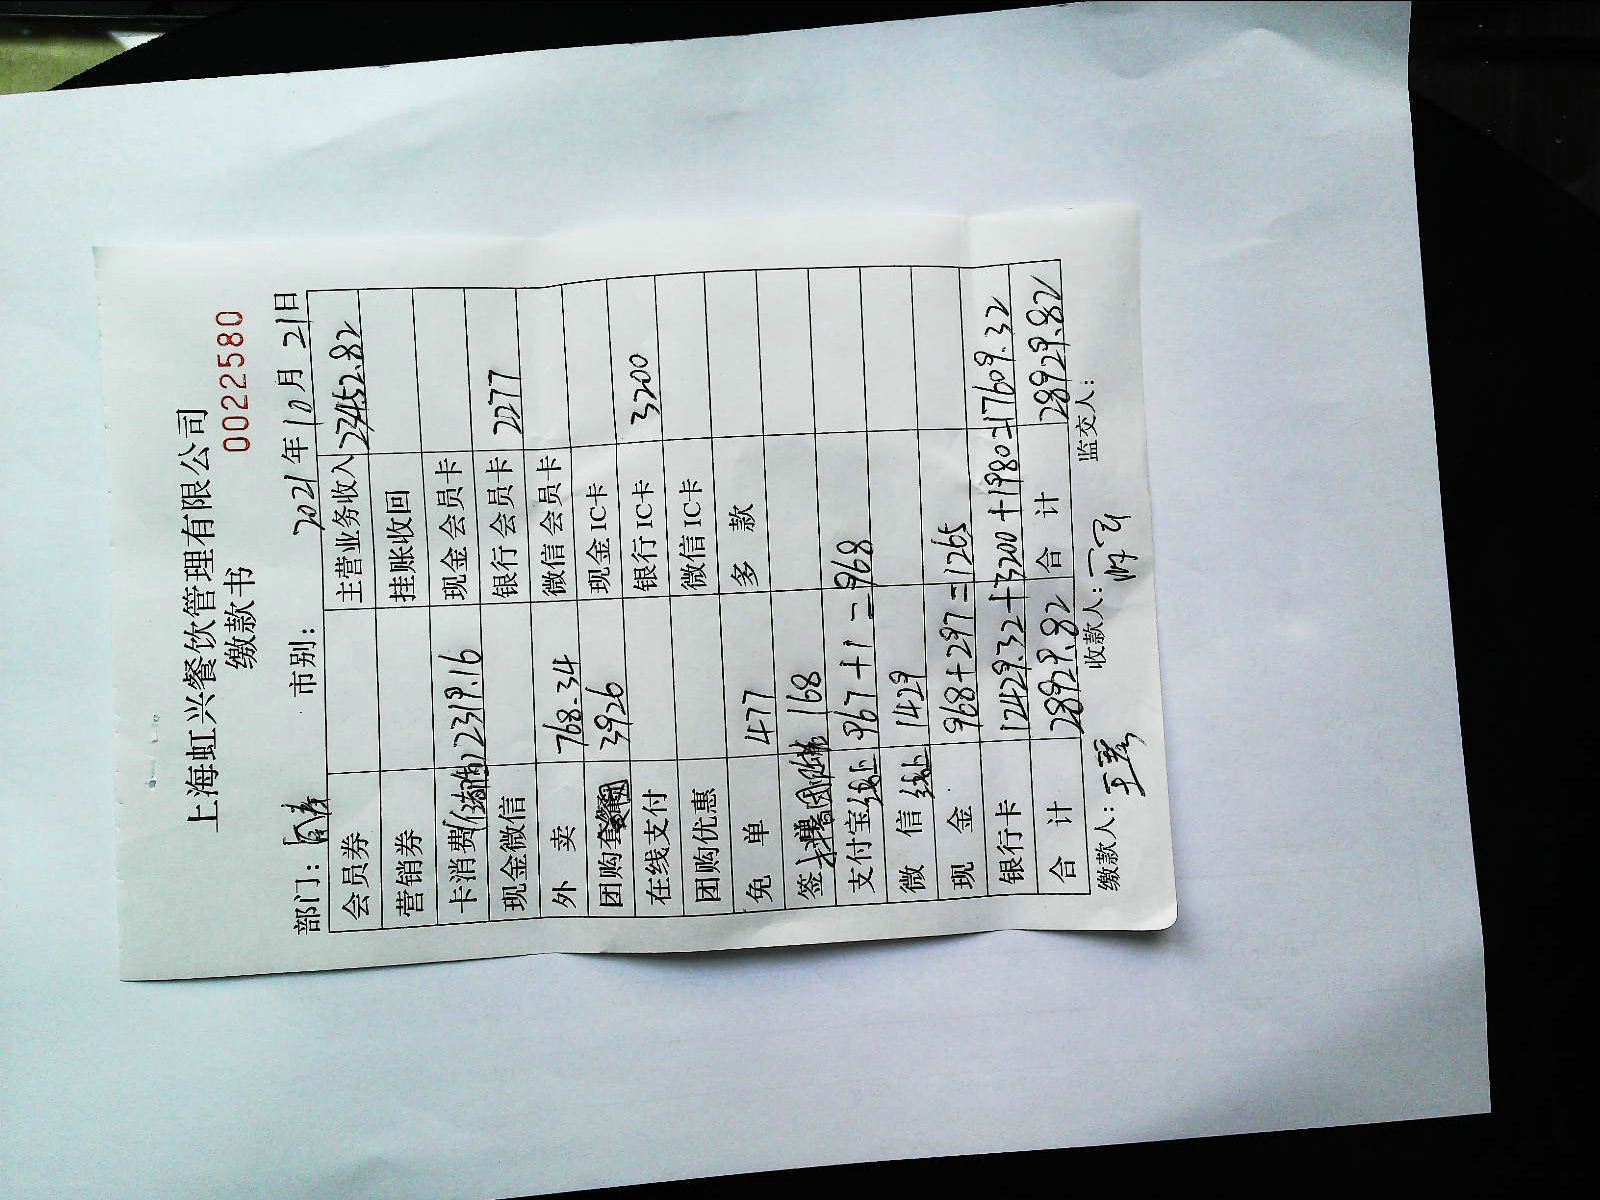 上海虹兴餐饮管理有限公司
缴款书
0022580
部门: 市别: 2021年10月21日
会员券 主营业务收入 23452.82
营销券 挂账收回
卡消费 2319.16 现金会员卡
现金微信 银行会员卡 2277
外 卖 768.34 微信会员卡
团购套餐 3926 现金IC卡
在线支付 银行IC卡 3200
团购优惠 微信IC卡
免 单 477 多 款
签 168
支付宝 线上 967+1=968
微 信 线上 1429
现 金 968+297=1265
银行卡 12429.32+3200+1980=17609.32
合 计 28929.82 合 计 28929.82
缴款人: 收款人: 监交人: